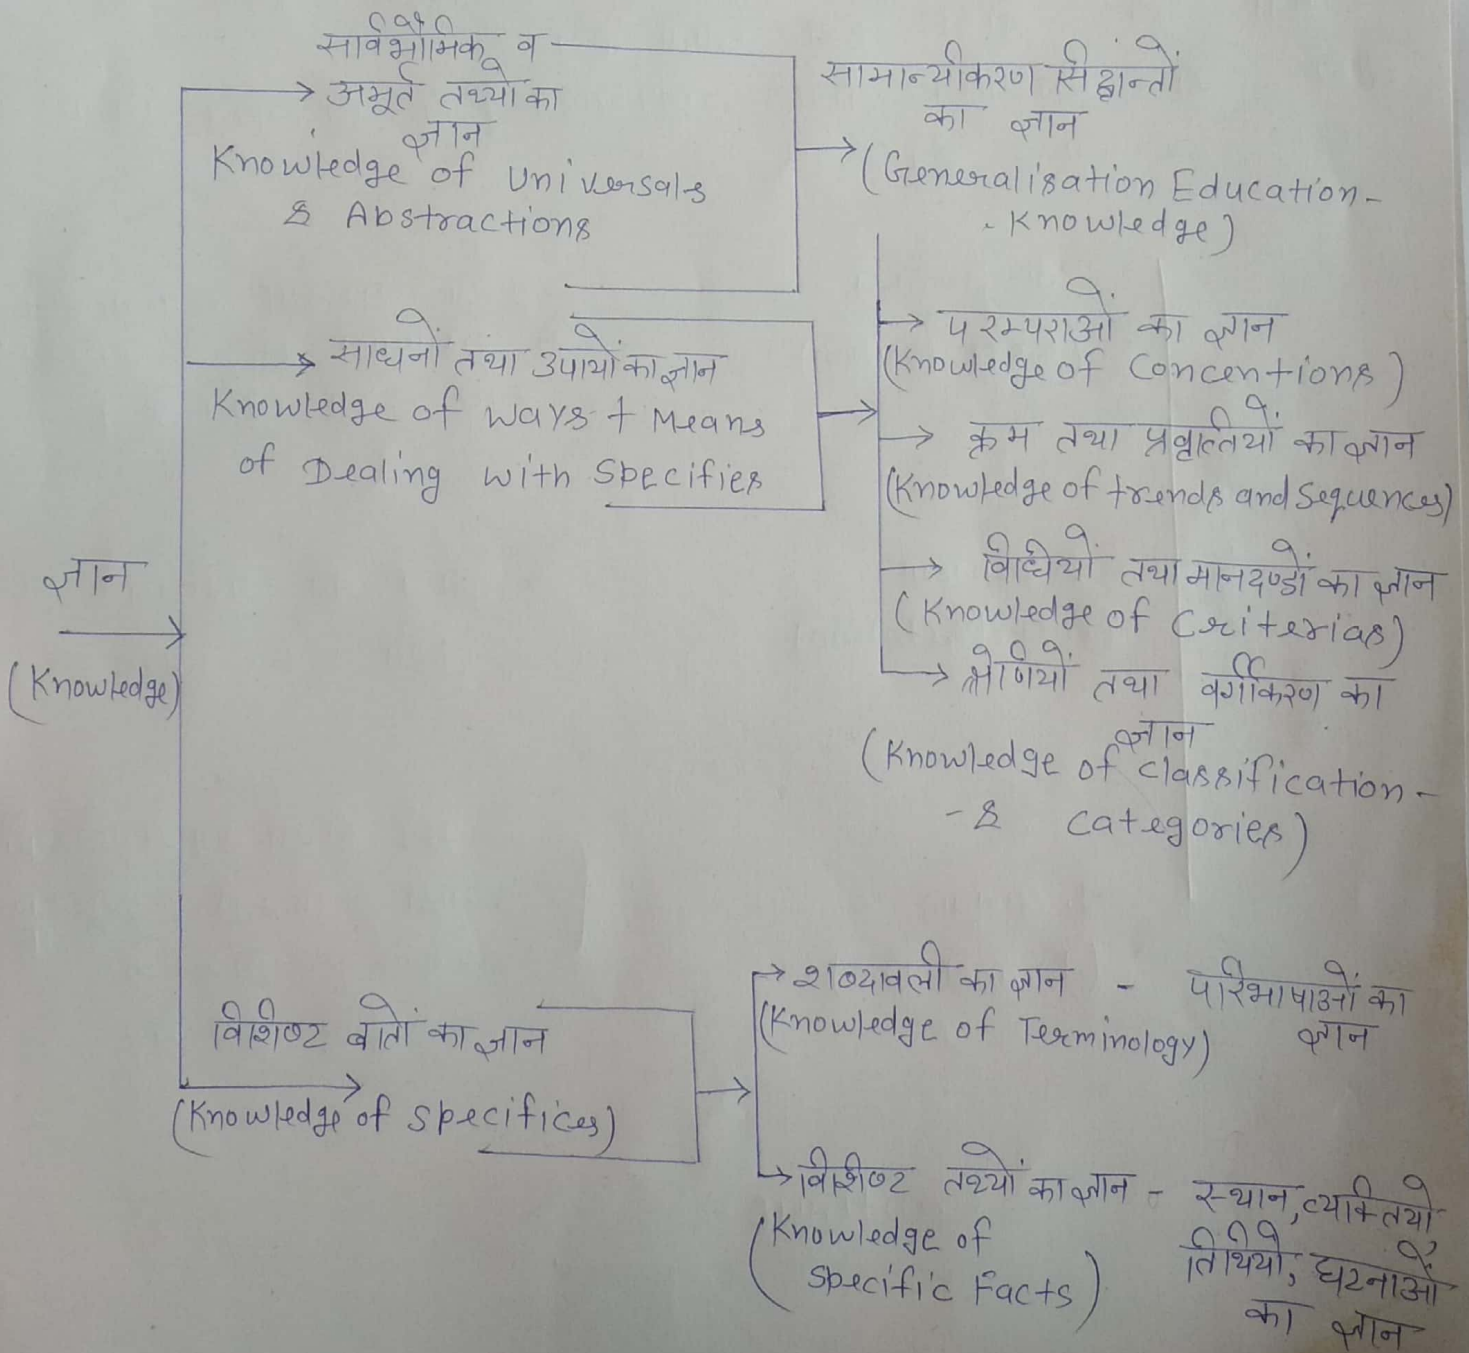 सार्वभौमिक व
अमूर्त तथ्यो का
ज्ञान
Knowledge of Universals
& Abstractions
सामान्यीकरण सिद्धान्तों
का ज्ञान
(Generalisation Education-
Knowledge)
साधनों तथा उपायों का ज्ञान
Knowledge of ways + Means
of Dealing with Specifies
परम्पराओं का ज्ञान
(Knowledge of Concentions)
क्रम तथा प्रवृत्तियों का ज्ञान
(Knowledge of trends and Sequences)
विधियों तथा मानदण्डों का ज्ञान
(Knowledge of Criterias)
श्रेणियों तथा वर्गीकरण का
ज्ञान
(Knowledge of classification-
- & Categories)
ज्ञान
(Knowledge)
विशिष्ट बातों का ज्ञान
(Knowledge of Specifices)
शब्दावली का ज्ञान - परिभाषाओं का
ज्ञान
(Knowledge of Terminology)
विशिष्ट तथ्यों का ज्ञान - स्थान, व्यक्तियो,
तिथियो, घटनाओं
का ज्ञान
(Knowledge of
Specific Facts)